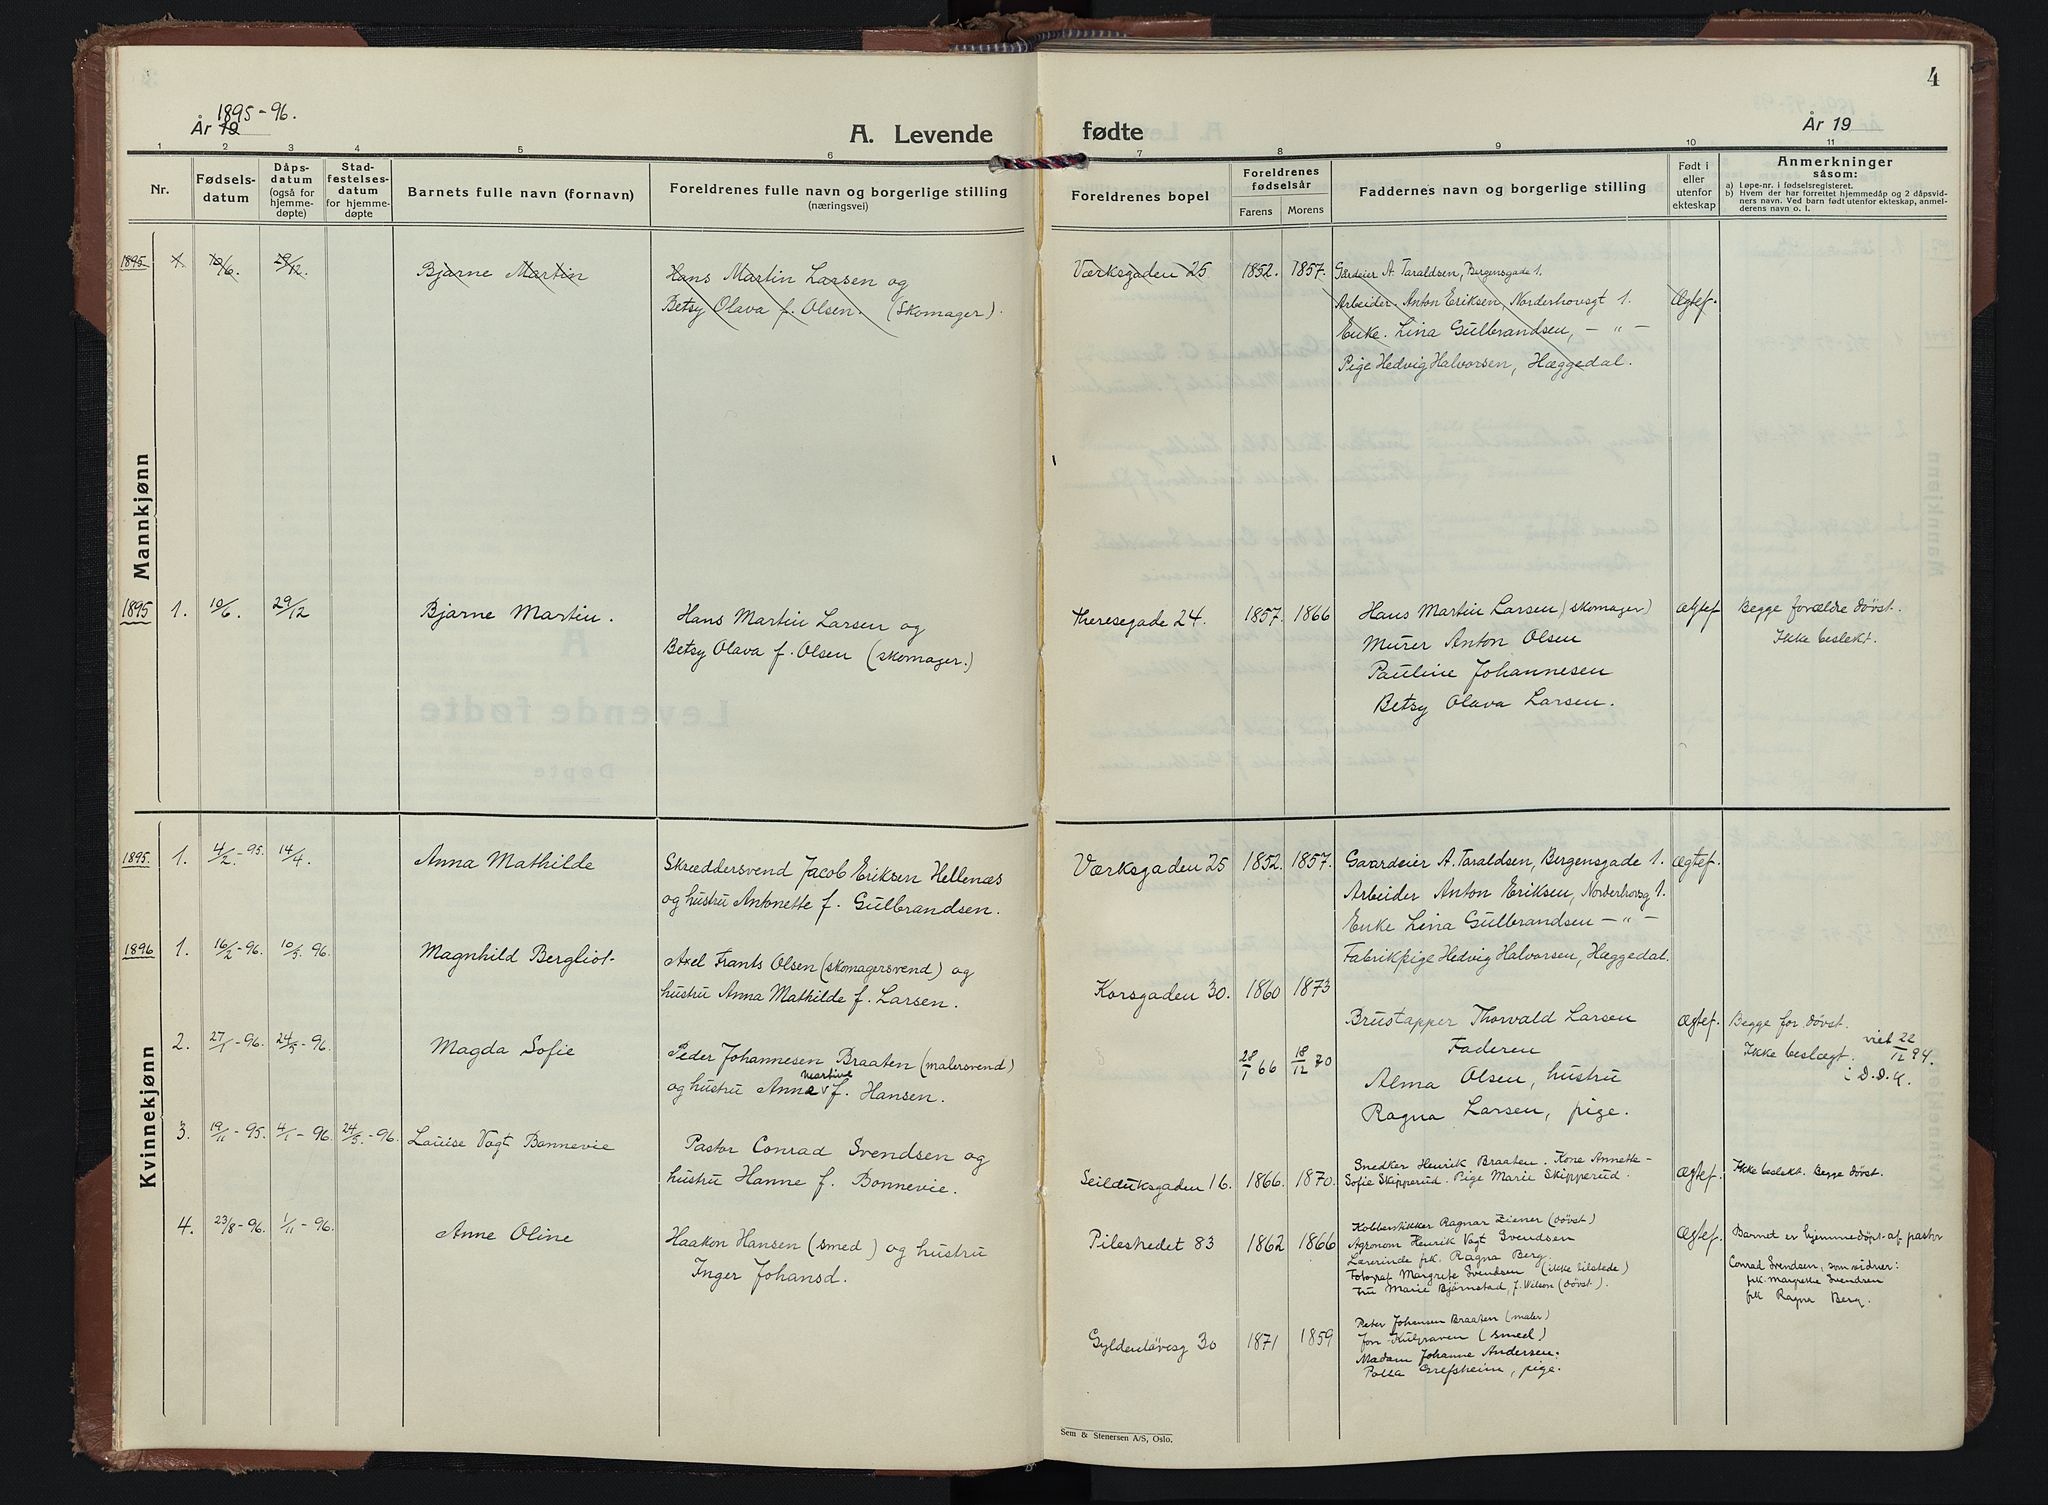 4
1895-96.
År 19
A. Levende fødte
År 19
1 2 3 4 5 6 7 8 9 10 11
Nr.
Fødsels-
datum
Dåps-
datum
(også for
hjemme-
døpte)
Stad-
festelses-
datum
for hjemme-
døpte
Barnets fulle navn (fornavn)
Foreldrenes fulle navn og borgerlige stilling
(næringsvei)
Foreldrenes bopel
Foreldrenes
fødselsår
Farens
Morens
Faddernes navn og borgerlige stilling
Født i
eller
utenfor
ekteskap
Anmerkninger
såsom:
a) Løpe-nr. i fødselsregisteret.
b) Hvem der har forrettet hjemmedåp og 2 dåpsvid-
ners navn. Ved barn født utenfor ekteskap, anmel-
derens navn o. l.
Mannkjønn
1895 1. 10/6. 29/12. Bjarne Martin
Hans Martin Larsen og
Betsy Olava f. Olsen. (Skomager).
Værksgaden 25 1852. 1857.
Gårdeier A. Taraldsen, Bergensgade 1.
Arbeider Anton Eriksen, Norderhovsgt 1.
Enke. Lina Gulbrandsen, - " -
Pige Hedvig Halvorsen, Hæggedal.
Ægtef.
1895 1. 10/6. 29/12 Bjarne Martin.
Hans Martin Larsen og
Betsy Olava f. Olsen (skomager.)
Theresegade 24. 1857. 1866
Hans Martin Larsen (skomager)
Murer Anton Olsen
Pauline Johannesen
Betsy Olava Larsen.
Ægtef
Begge forældre døvst.
Ikke beslekt.
Kvinnekjønn
1895. 1. 4/2-95. 14/4. Anna Mathilde
Skræddersvend Jacob Eriksen Hellenæs
og hustru Antonette f. Gulbrandsen.
Værksgaden 25 1852. 1857.
Gaardeier A. Taraldsen, Bergensgade 1.
Arbeider Anton Eriksen, Norderhovsg 1.
Enke Lina Gulbrandsen - " -
Fabrikpige Hedvig Halvorsen, Hæggedal.
Ægtef.
1896 1. 16/2-96. 10/5 96. Magnhild Bergliot-
Axel Frants Olsen (skomagersvend) og
hustru Anna Mathilde f. Larsen.
Korsgaden 30. 1860 1873
Brustapper Thorvald Larsen
Faderen
Alma Olsen, hustru
Ragna Larsen, pige.
Ægtef.
Begge for. døvst.
Ikke beslægt. viet 22/12 94.
i D.D.K.
2. 27/1-96. 24/5-96. Magda Sofie
Peder Johannesen Braaten (malersvend)
Martine
og hustru Anna f. Hansen.
28/1 66 18/12 70
3. 19/11-95. 4/1-96. 24/5-96. Louise Vogt Bonnevie
Pastor Conrad Svendsen og
hustru Hanne f. Bonnevie.
Seilduksgaden 16. 1866. 1870.
Snedker Henrik Braaten. Kone Annette-
Sofie Skipperud. Pige Marie Skipperud.
Ægtef.
Ikke beslekt. Begge døvst.
4. 23/8-96. 1/11-96. Anne Oline
Haakon Hansen (smed) og hustru
Inger Johansd.
Pilestredet 83 1862 1866
Kobberstikker Ragnar Ziener (døvst)
Agronom Henrik Vogt Svendsen
Lærerinde frk. Ragna Berg.
Fotograf Margrete Svendsen (ikke tilstede)
Fru Marie Bjørnstad, f. Wilson (døvst).
Ægtef.
Barnet er hjemmedøpt af pastor
Conrad Svendsen, som vidner:
frk. Margrethe Svendsen
frk Ragna Berg.
Gyldenløvesg 30 1871 1859
Peter Johansen Braaten (maler)
Jon Kulgraven (smed)
Madam Johanne Andersen.
Polla Grefsheim, pige.
Sem & Stenersen A/S, Oslo.